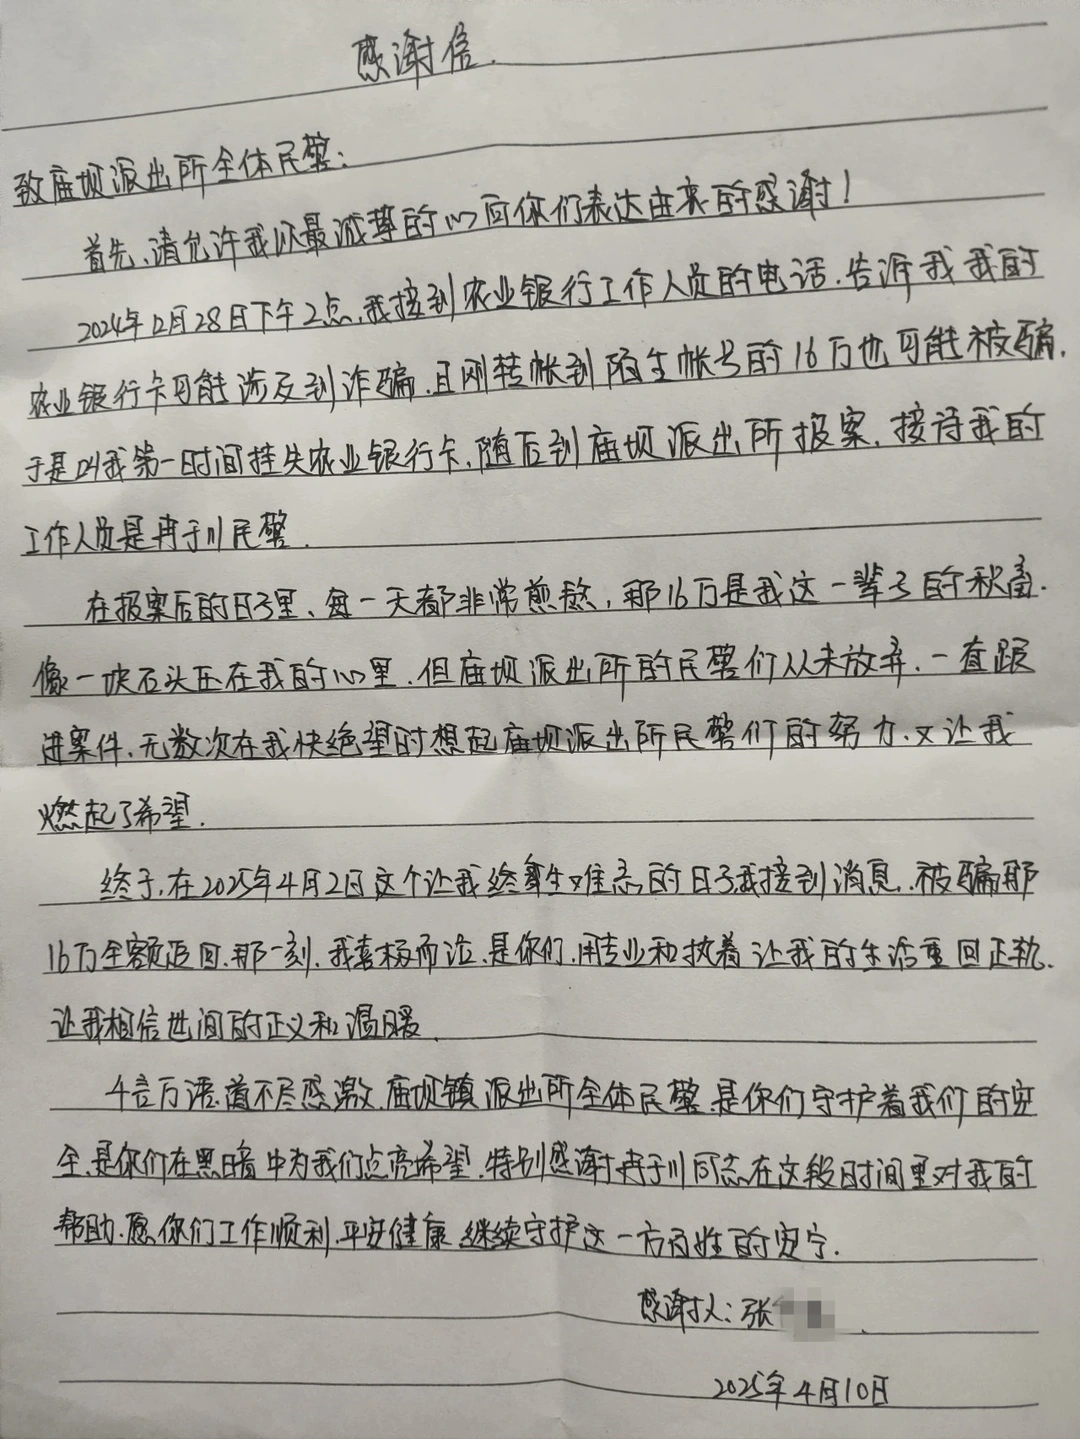 感谢信.
致庙坝派出所全体民警:
首先、请允许我以最诚挚的心向你们表达由衷的感谢!
2024年12月28日下午2点,我接到农业银行工作人员的电话.告诉我我的
农业银行卡可能涉及到诈骗.且刚转帐到陌生帐号的16万也可能被骗.
于是叫我第一时间挂失农业银行卡,随后到庙坝派出所报案.接待我的
工作人员是冉于川民警.
在报案后的日子里、每一天都非常煎熬,那16万是我这一辈子的积蓄.
像一块石头压在我的心里.但庙坝派出所的民警们从未放弃.一直跟
进案件.无数次在我快绝望时想起庙坝派出所民警们的努力.又让我
燃起了希望.
终于,在2025年4月2日这个让我终生难忘的日子我接到消息.被骗那
16万全额返回.那一刻.我喜极而泣.是你们.用专业和执着让我的生活重回正轨.
让我相信世间的正义和温暖.
千言万语道不尽感激.庙坝镇派出所全体民警.是你们守护着我们的安
全.是你们在黑暗中为我们点亮希望.特别感谢冉于川同志在这段时间里对我的
帮助.愿你们工作顺利.平安健康.继续守护这一方百姓的安宁.
感谢人:张
2025年4月10日